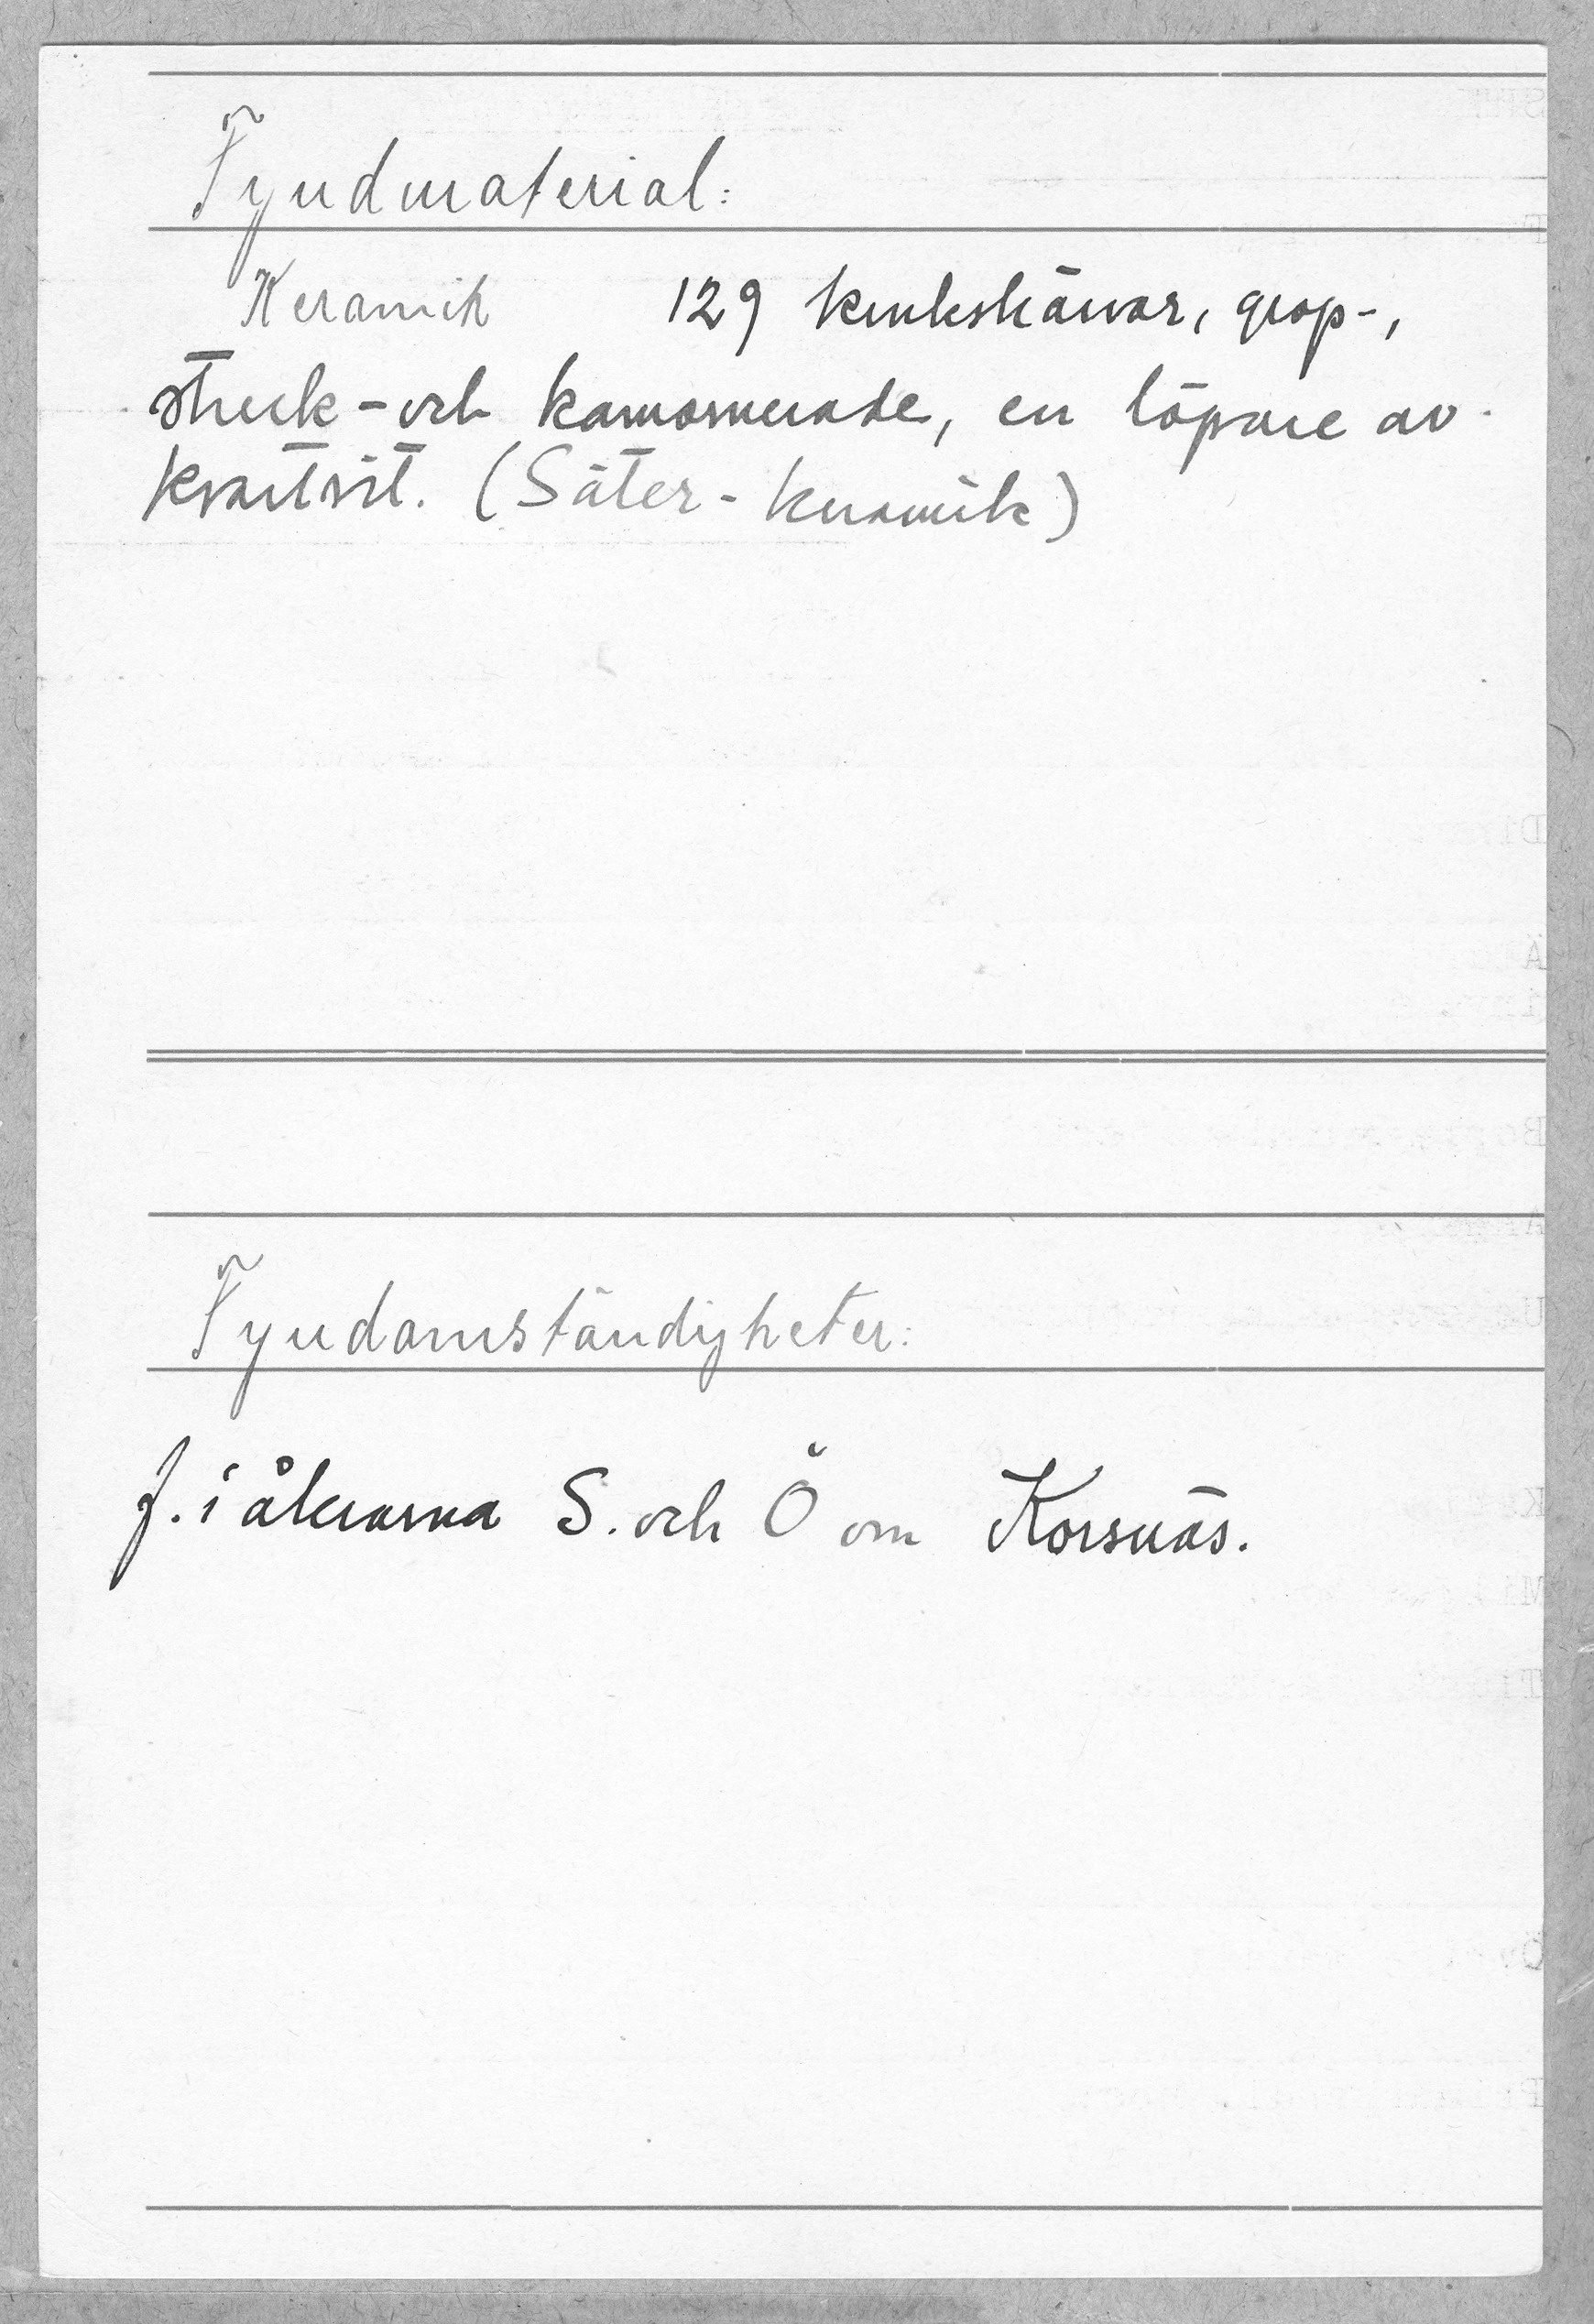 Fyndmaterial:
Keramik 129 krukskärvor, grop-,
streck- och kamornerade, en löpare av
kvartsit. (Säter-keramik)
Fyndomständigheter:
f. i åkrarna S. och Ö om Korsnäs.